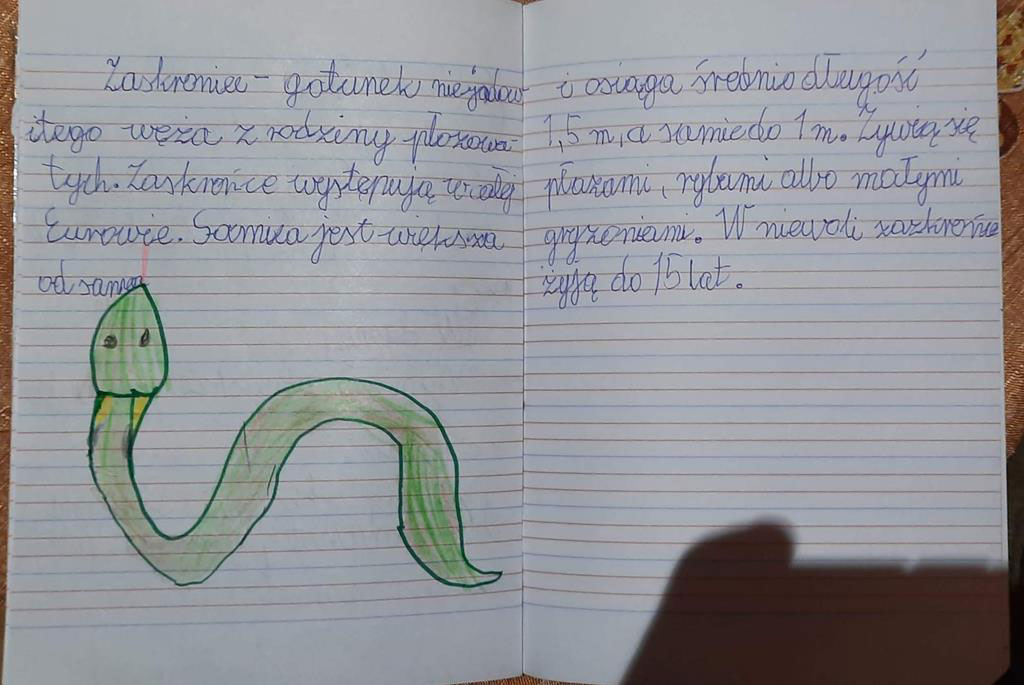 Zaskroniec - gatunek niejadow
itego węża z rodziny płozowa-
tych. Zaskrońce występują w całej
Europie. Samica jest większa
od samca
i osiąga średnio długość
1,5 m, a samiec do 1 m. Żywią się
płazami, rybami albo małymi
gryzoniami. W niewoli zazkrońce
żyją do 15 lat.